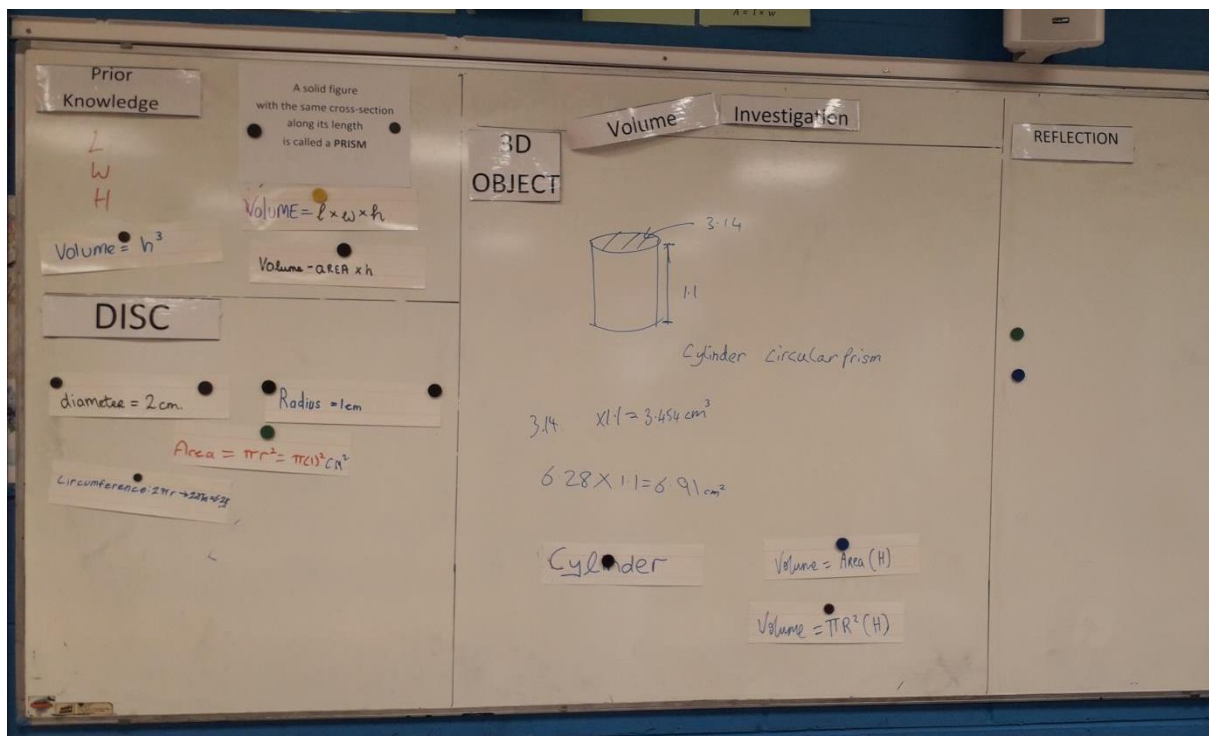 A = l × w
Prior
Knowledge
L
W
H
Volume = h³
A solid figure
with the same cross-section
along its length
is called a PRISM
VolUME = l × w × h
Volume = aREA × h
DISC
diameter = 2 cm.
Radius = 1cm
Area = πr² = π(1)² cm²
Circumference: 2πr →
3D
OBJECT
Volume Investigation
3.14
1.1
Cylinder circular prism
3.14 ×1.1 = 3.454 cm³
6.28 × 1.1 = 6.91 cm²
Cylinder
Volume = Area (H)
Volume = πR² (H)
REFLECTION